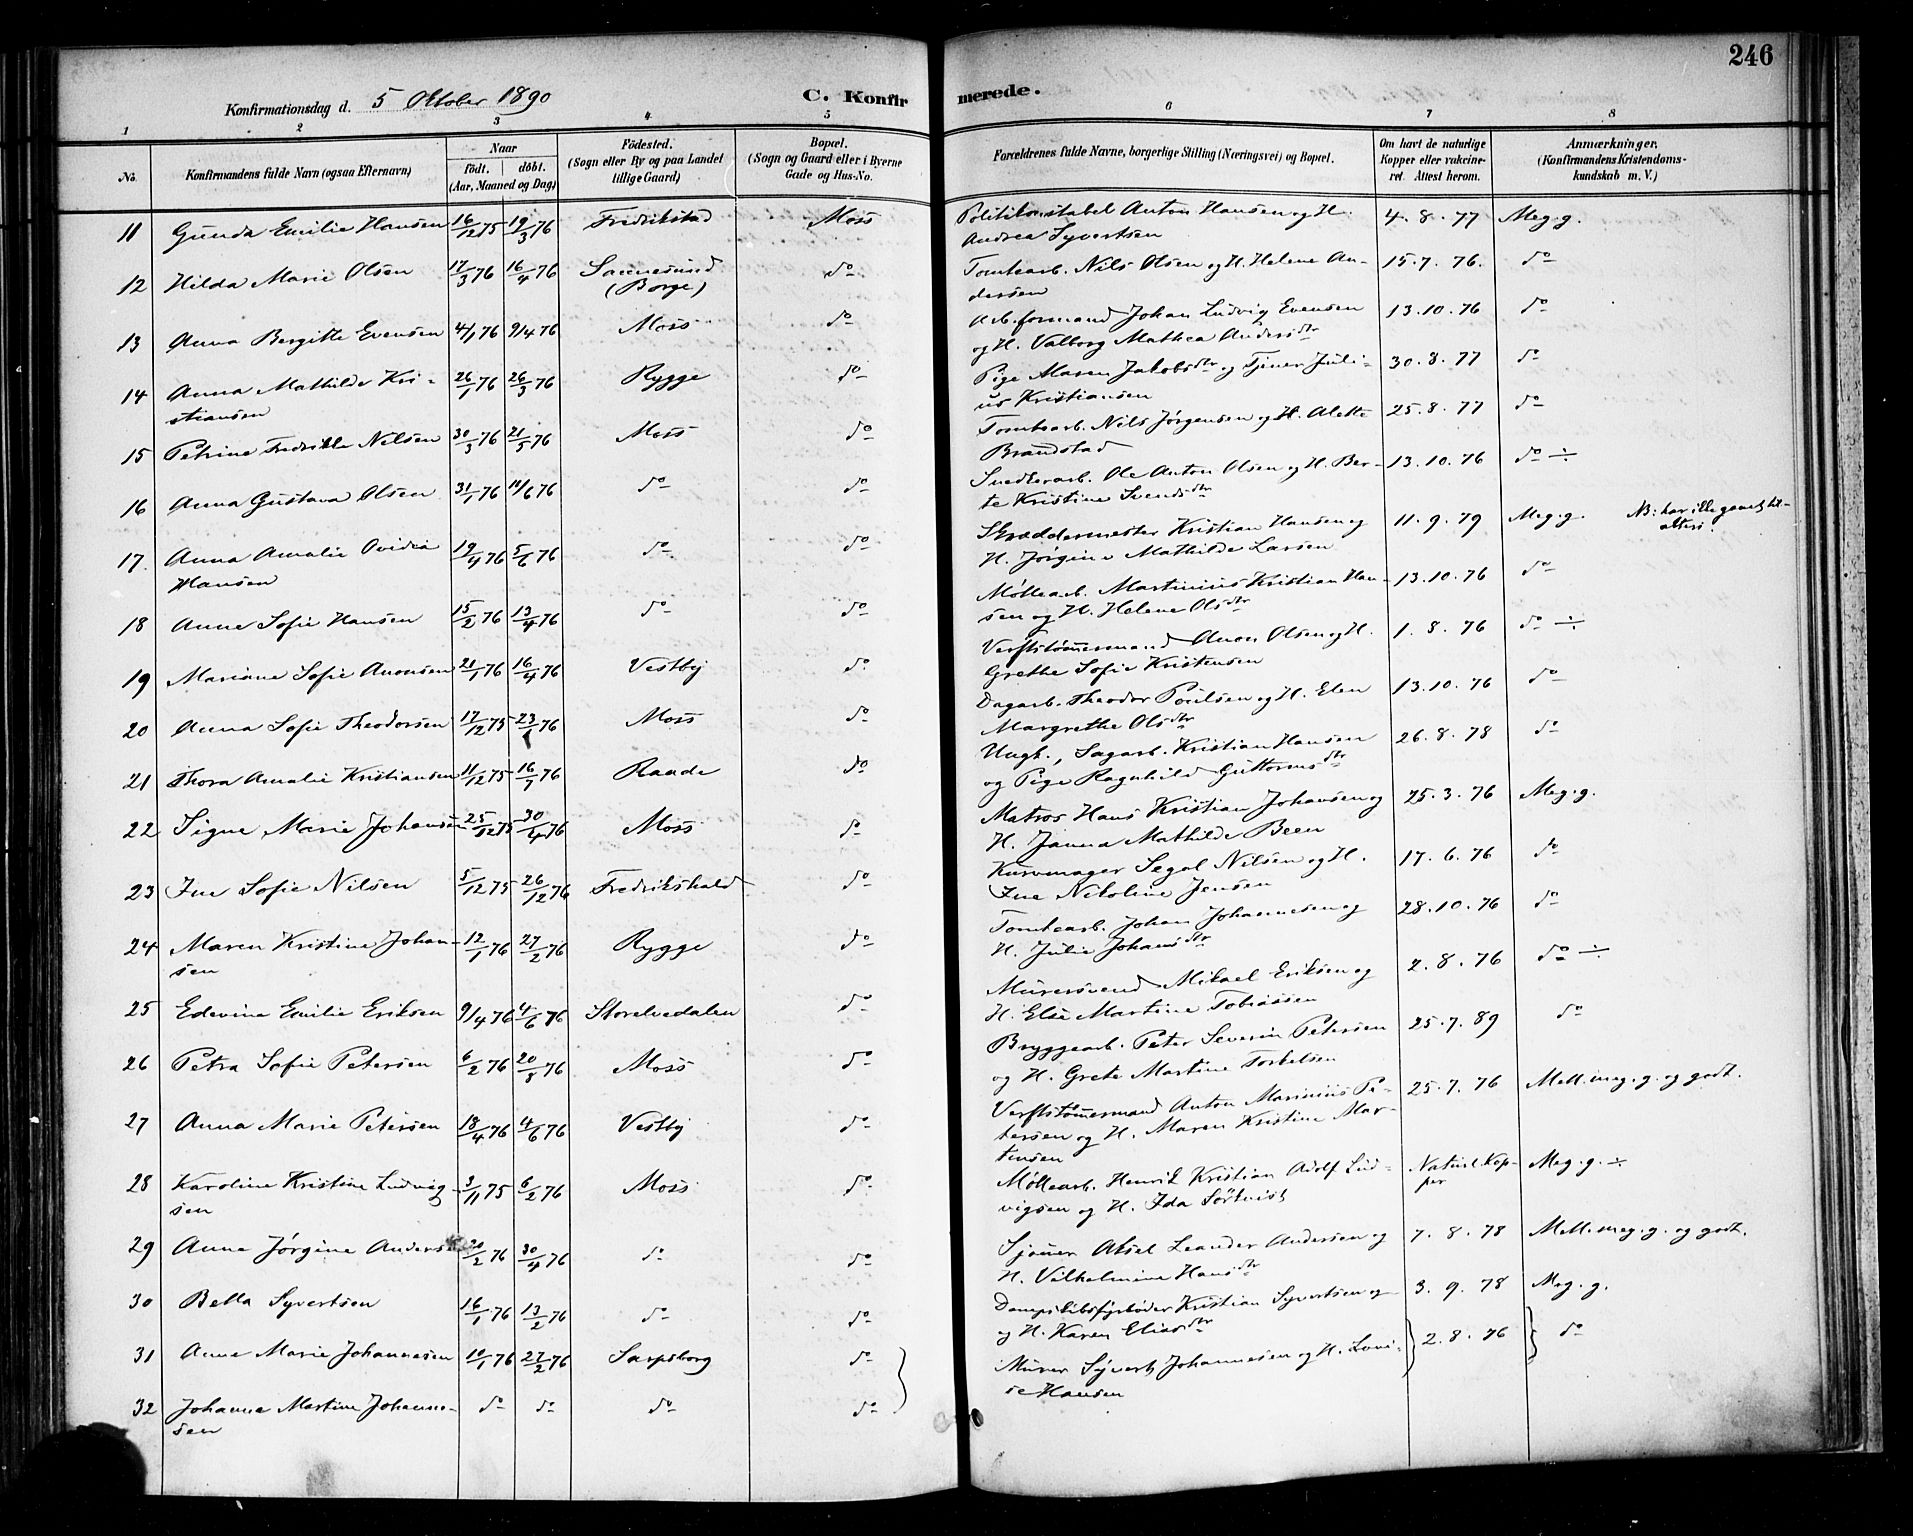 246
Konfirmationsdag d. 5 Oktober 1890
C. Konfir merede.
1 2 3 4 5 6 7 8
No.
Konfirmandens fulde Navn (ogsaa Efternavn)
Naar
födt. döbt.
(Aar, Maaned og Dag)
Födested.
(Sogn eller By og paa Landet
tillige Gaard)
Bopæl.
(Sogn og Gaard eller i Byerne
Gade og Hus-No.
Forældrenes fulde Navne, borgerlige Stilling (Næringsvei) og Bopæl.
Om havt de naturlige
Kopper eller vakcine-
ret. Attest herom.
Anmærkninger.
(Konfirmandens Kristendoms-
kundskab m. V.)
11 Gunda Emilie Hansen 16/12 75 19/3 76 Fredrikstad Moss Politikonstabel Anton Hansen og H. 4.8.77 Meg.g.
Andrea Syvertsen
12 Hilda Marie Olsen 17/3 76 16/4 76 Sannesund do Tomtearb. Nils Olsen og H. Helene An- 15.7.76. do
(Borge) dersen
13 Anna Bergitte Evensen 4/1 76 9/4 76 Moss do Arb.formand Johan Ludvig Evensen 13.10.76 do
og H. Valborg Mathea Andersdtr
14 Anna Mathilde Kri- 26/1 76 26/3 76 Rygge do Pige Maren Jakobsdtr og Tjener Juli- 30.8.77 do
stiansen us Kristiansen
15 Petrine Fredrikke Nilsen 30/3 76 21/5 76 Moss do Tomtearb. Nils Jørgensen og H. Alette 25.8.77 do
Brandstad
16 Anna Gustava Olsen 31/1 76 11/6 76 do do Snedkerarb. Ole Anton Olsen og H. Ber- 13.10.76 do ÷
te Kristine Svendsdtr
17. Anna Amalie Ovidia 19/4 76 5/6 76 do do Skræddermester Kristian Hansen og 11.9.79 Meg.g. NB: har ikke gaaet til
Hansen H. Jørgine Mathilde Larsen alters.
18 Anne Sofie Hansen 15/2 76 13/4 76 do do Møllearb. Martinius Kristian Han- 13.10.76 do
sen og H. Helene Olsdtr
19 Mariane Sofie Anonsen 21/1 76 16/4 76 Vestby do Verftstømmermand Anon Olsen og H. 1.8.76 do ÷
Grethe Sofie Kristensen
20 Anna Sofie Theodorsen 17/12 75 23/1 76 Moss do Dagarb. Theodor Poulsen og H. Elen 13.10.76 do
Margrethe Olsdtr
21 Thora Amalie Kristiansen 11/12 75 16/1 76 Raade do Ungk., Sagarb. Kristian Hansen 26.8.78 do
og Pige Ragnhild Guttormsdtr
22 Signe Marie Johansen 25/12 75 30/4 76 Moss do Matros Hans Kristian Johansen og 25.3.76 Meg.g.
H. Janna Mathilde Been
23 Ine Sofie Nilsen 5/12 75 26/12 76 Fredrikshald do Kurvmager Segol Nilsen og H. 17.6.76 do
Ine Nikoline Jensen
24 Maren Kristine Johan- 12/1 76 27/2 76 Rygge do Tomtearb. Johan Johannesen og 28.10.76 do
sen H. Julie Johansdtr
25 Edevine Emilie Eriksen 9/4 76 4/6 76 Storelvedalen do Murersvend Mikael Eriksen og 2.8.76 do ÷
H. Else Martine Tobiassen
26 Petra Sofie Petersen 6/2 76 20/8 76 Moss do Bryggearb. Peter Severin Petersen 25.7.89 do
og H. Grete Martine Torkelsen
27 Anna Marie Petersen 18/4 76 4/6 76 Vestby do Verftstømmermand Anton Marinius Pe- 25.7.76 Mell. meg.g. og godt.
tersen og H. Maren Kristine Mar-
tinsen
28 Karoline Kristine Ludvig- 3/11 75 6/2 76 Moss do Møllearb. Henrik Kristian Adolf Lud- Naturl. Kop- Meg.g. ÷
sen vigsen og H. Ida per
29 Anna Jørgine Anders 20/2 76 30/4 76 do do Sjømer Aksel Leander Andersen og 7.8.78 Mell. meg.g. og godt.
H. Vilhelmine Hansdtr
30 Bella Syvertsen 16/1 76 13/2 76 do do Dampskibsfyrbøder Kristian Syvertsen og 3.9.78 Meg.g.
og H. Karen Eliasdtr
31 Anne Marie Johannesen 10/1 76 27/2 76 Sarpsborg do Murer Syvert Johannesen og H. Loui- 2.8.76 do
se Hansen
32 Johanne Martine Johanne- do do do do
sen